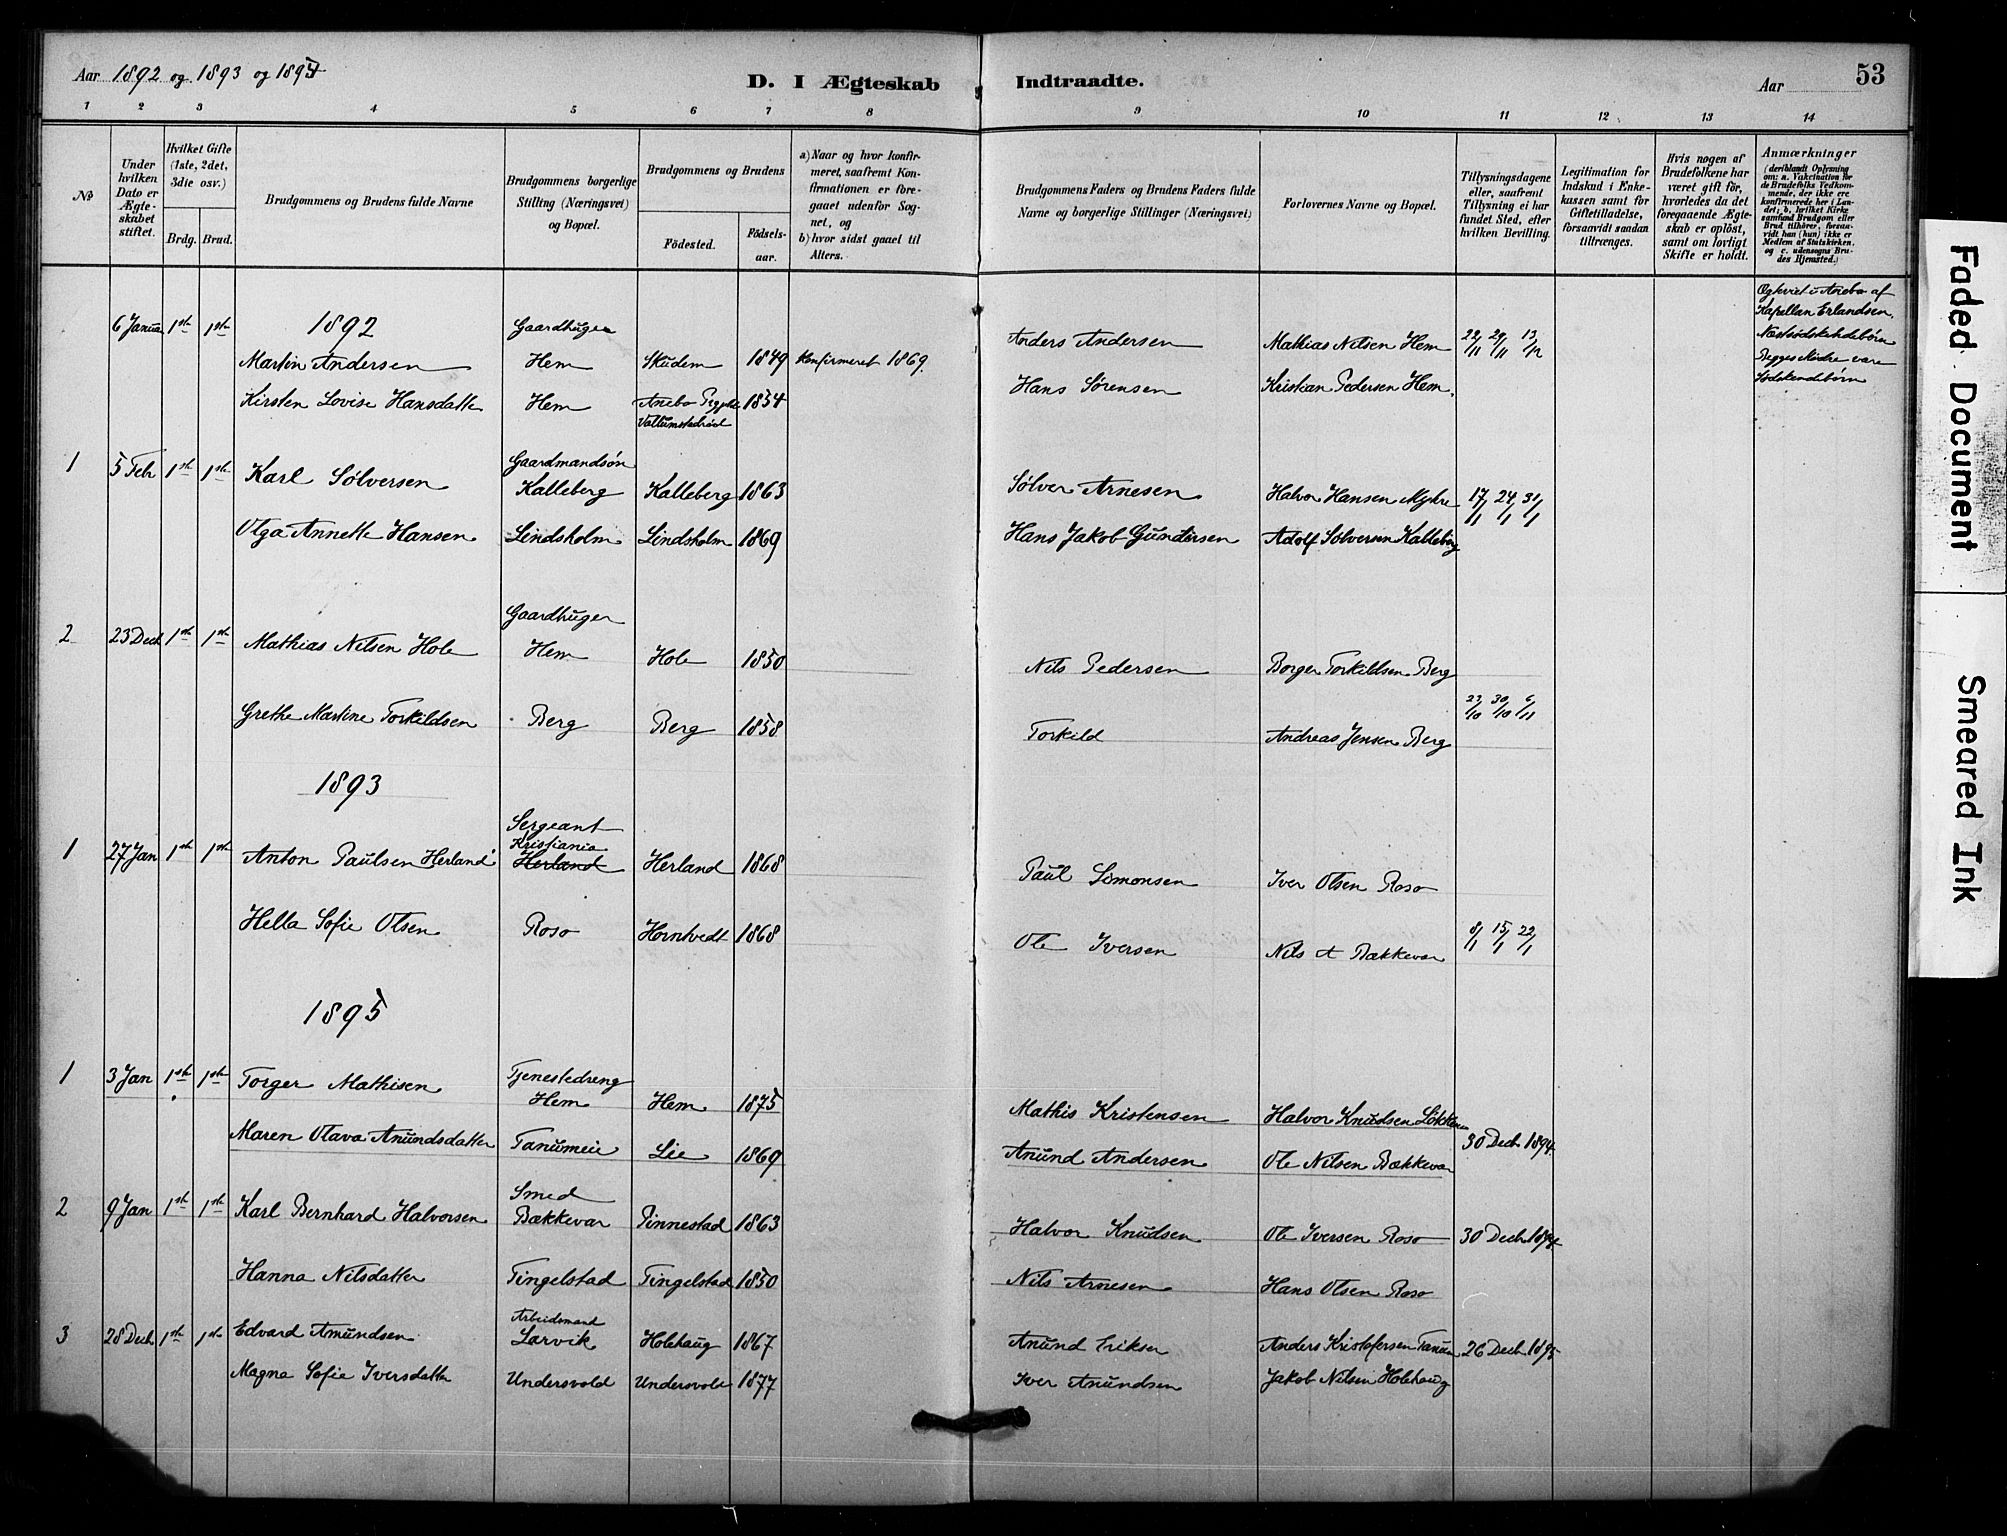 Aar 1892 og 1893 og 1895
D. I Ægteskab Indtraadte.
Aar
53
1 2 3 4 5 6 7 8 9 10 11 12 13 14
No
Under hvilken Dato er Ægteskabet stiftet.
Hvilket Gifte (1ste, 2det, 3die osv.)
Brdg. Brud.
Brudgommens og Brudens fulde Navne
Brudgommens borgerlige Stilling (Næringsvei) og Bopæl.
Brudgommens og Brudens
Födested.
Födsels-aar.
a) Naar og hvor konfirmeret, saafremt Konfirmationen er foregaaet udenfor Sognet, og
b) hvor sidst gaaet til Alters.
Brudgommens Faders og Brudens Faders fulde Navne og borgerlige Stillinger (Næringsvei)
Forlovernes Navne og Bopæl.
Tillysningsdagene eller, saafremt Tillysning ei har fundet Sted, efter hvilken Bevilling.
Legitimation for Indskud i Enkekassen samt for Giftetilladelse, forsaavidt saadan tiltrænges.
Hvis nogen af Brudefolkene har været gift för, hvorledes da det foregaaende Ægteskab er oplöst, samt om lovligt Skifte er holdt.
Anmærkninger
(deriblandt Oplysning om: a. Vakcination for de Brudefolks Vedkommende, der ikke ere konfirmerede her i Landet; b. hvilket Kirkesamfund Brudgom eller Brud tilhörer, forsaavidt han (hun) ikke er Medlem af Statskirken, og c. udensogns Brudes Hjemsted.)
1892
6 Januar 1ste 1ste Gaardbruger
Martin Andersen Hem Skudem 1849 Konfirmeret 1869. Anders Andersen Mathias Nilsen Hem 22/11 29/11 13/12
Kirsten Lovise Hansdatter Hem Anebo 1854 Hans Sørensen Kristian Pedersen Hem.
Ægteviet i Anebo af
Kapellan Erlandsen.
Næstsødskendebørn
Begges Mødre vare
Sødskendebørn
1 5 Febr 1ste 1ste Karl Sølversen Gaardmandsøn Kalleberg Kalleberg 1863 Sølver Arnesen Halvor Hansen Mykre 17/1 24/1 31/1
Olga Annette Hansen Lindsholm Lindsholm 1869 Hans Jakob Gundersen Adolf Sølversen Kalleberg
2 23 Decb 1ste 1ste Mathias Nilsen Hole Gaardbruger Hem Hole 1850 Nils Pedersen Borger Torkildsen Berg
23/10 30/10 6/11
Grethe Martine Torkildsen Berg Berg 1858 Torkild Andreas Jensen Berg
1893
1 27 Jan 1ste 1ste Anton Paulsen Herland Sergeant Kristiania Herland Herland 1868 Paul Simonsen Iver Olsen Roso
Hella Sofie Olsen Roso Horntvedt 1868 Ole Iversen Nils A Bækkevar 8/1 15/1 22/1
1895
1 3 Jan 1ste 1ste Torger Mathisen Tjenestedreng Hem Hem 1875 Mathis Kristensen Halvor Knudsen
30 Decb 1894.
Maren Olava Anundsdatter Tanumeie Lie 1869 Anund Andersen Ole Nilsen Bækkevar
2 9 Jan 1ste 1ste Karl Bernhard Halvorsen Smed Bækkevar Pinnestad 1863 Halvor Knudsen Ole Iversen Roso 30 Decb 1894
Hanna Nilsdatter Tingelstad Tingelstad 1850 Nils Arnesen Hans Olsen Roso
3 28 Decb 1ste 1ste Edvard Amundsen Arbeidsmand Larvik Holehaug 1867 Anund Eriksen Anders Kristofersen Tanum 26 Decb 1895
Magna Sofie Iversdatter Undersvold Undersvold 1877 Iver Anundsen Jakob Nilsen Holehaug
Faded Document
Smeared Ink